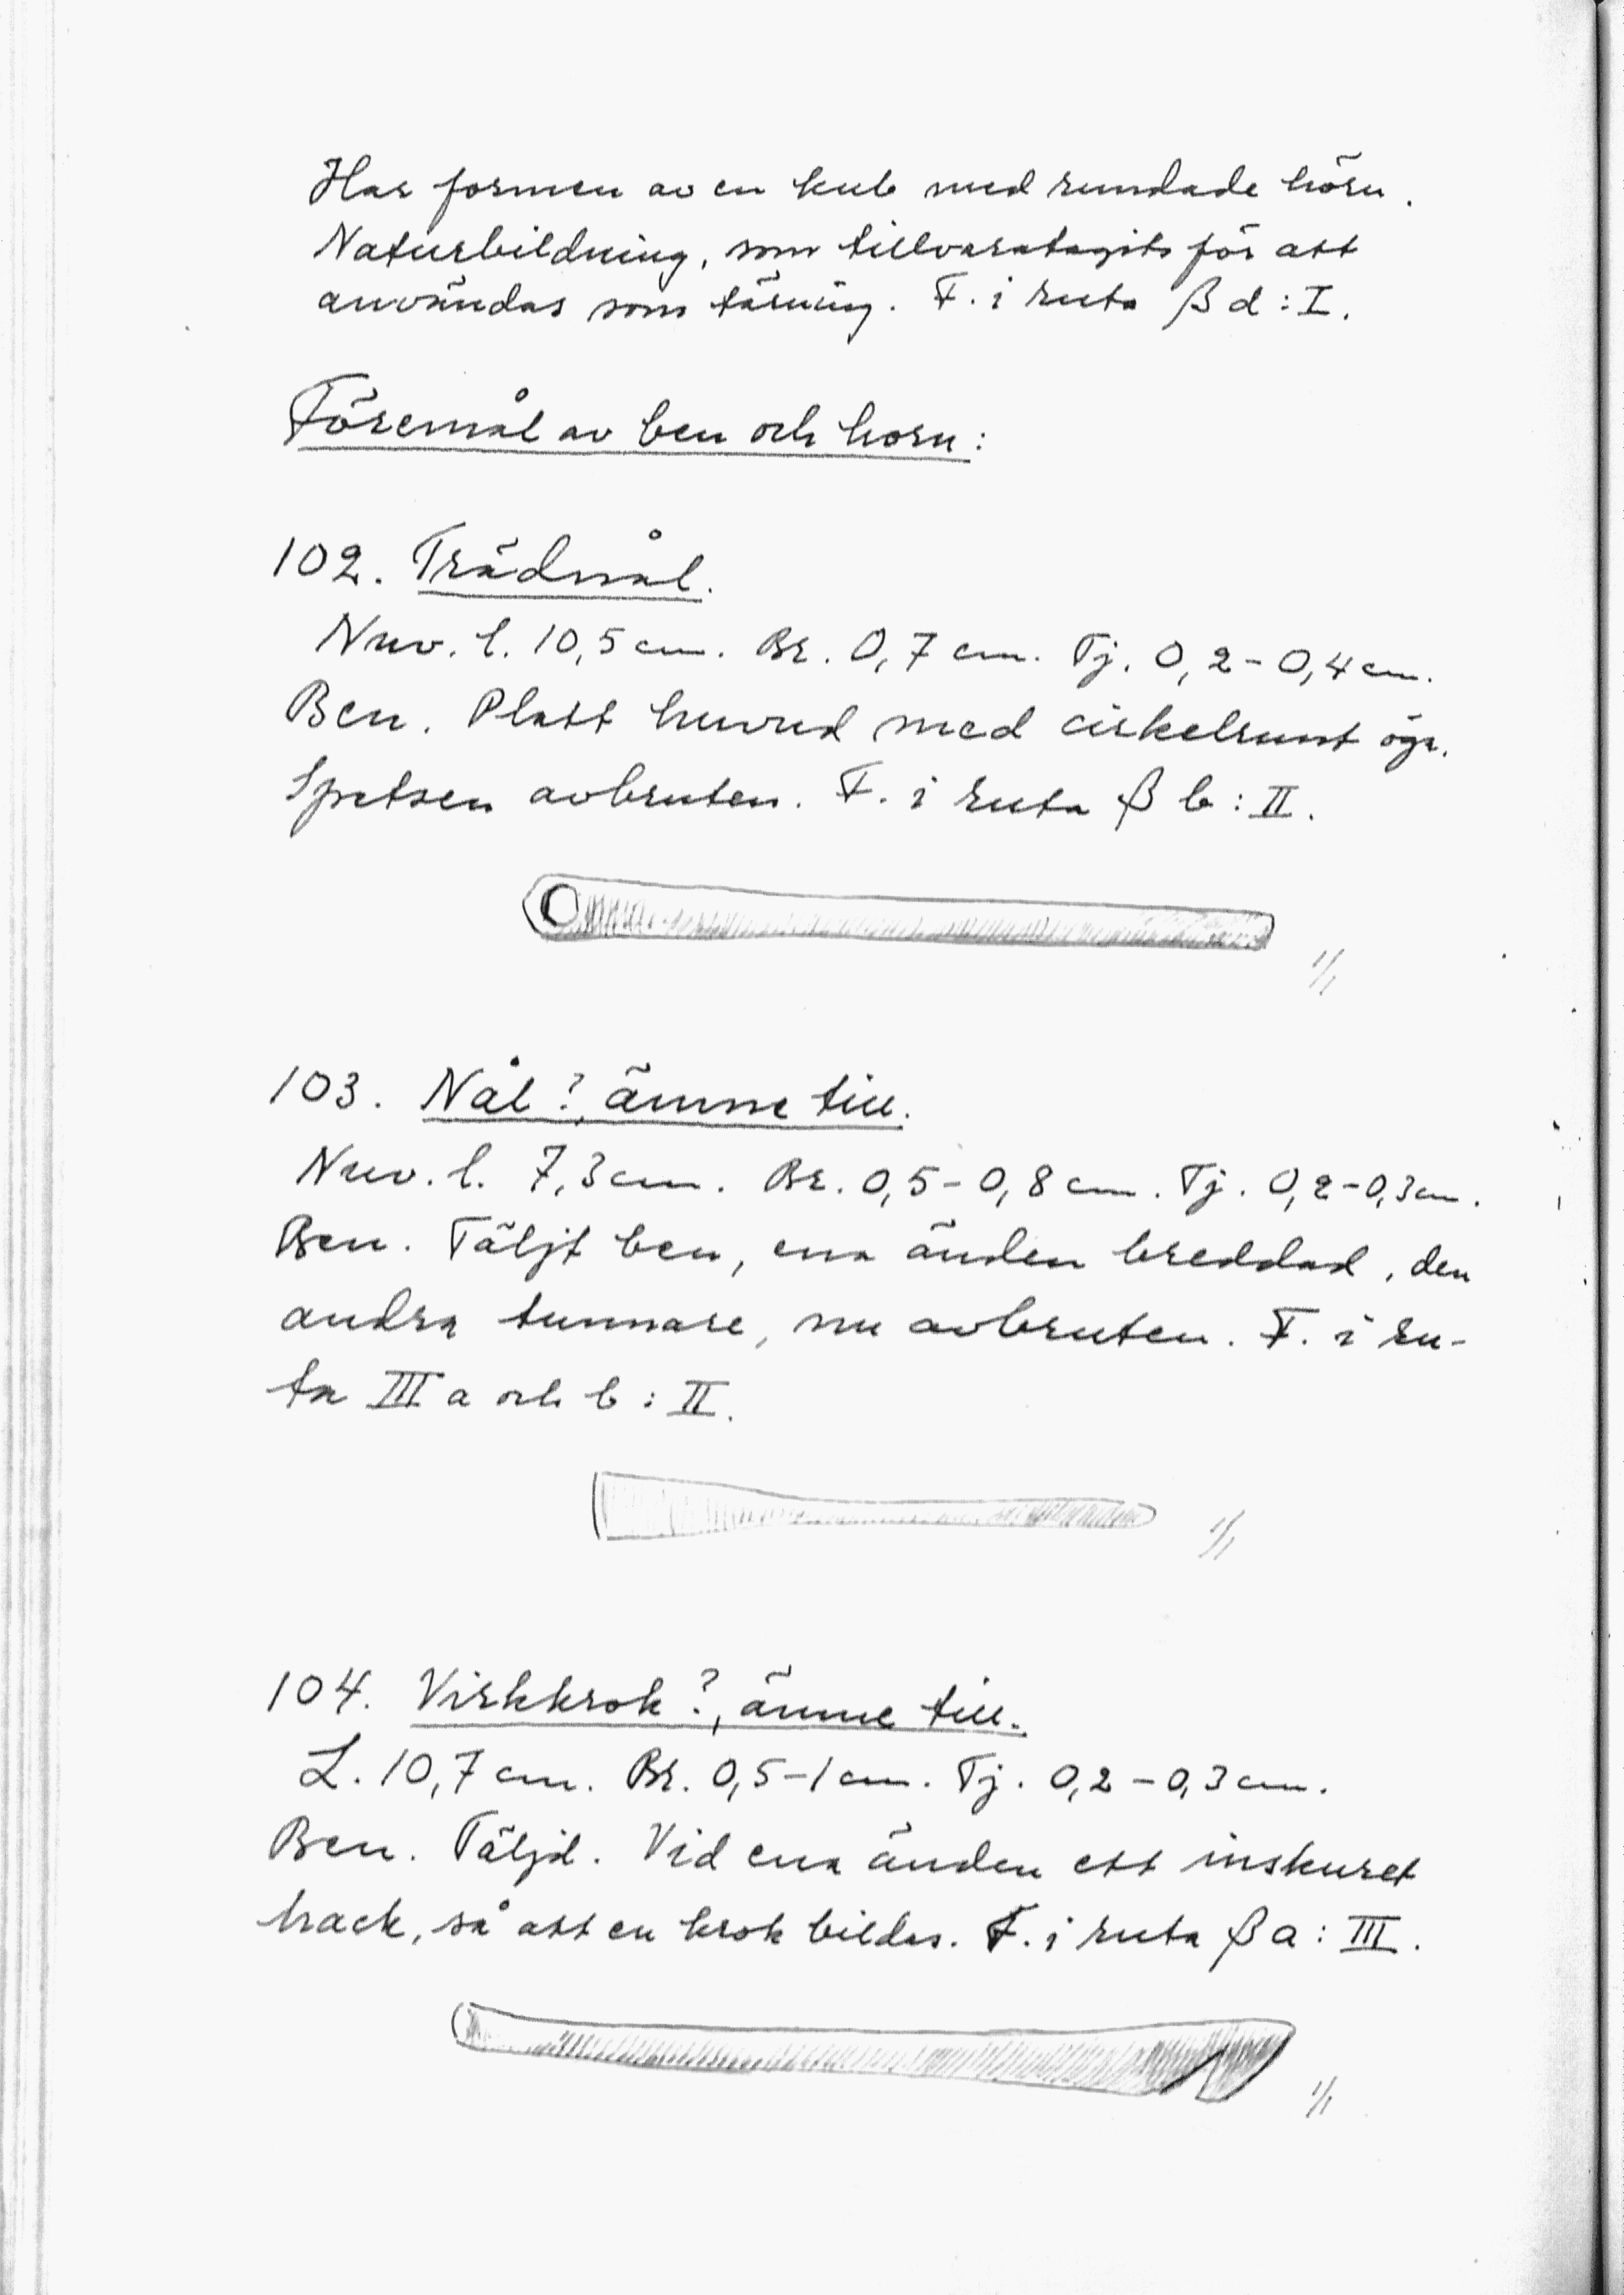 Har formen av en kub med rundade hörn.
Naturbildning, som tillvaratagits för att
användas som tärning. F. i ruta β d : I.
Föremål av ben och horn :
102. Trådnål.
Nuv. l. 10,5 cm. Br. 0,7 cm. Tj. 0,2 - 0,4 cm.
Ben. Platt huvud med cirkelrunt öga.
Spetsen avbruten. F. i ruta β b : II.
1/1
103. Nål?, ämne till.
Nuv. l. 7,3 cm. Br. 0,5 - 0,8 cm. Tj. 0,2 - 0,3 cm.
Ben. Täljt ben, ena änden breddad, den
andra tunnare, nu avbruten. F. i ru-
ta III a och b : II.
1/1
104. Virkkrok?, ämne till.
L. 10,7 cm. Br. 0,5 - 1 cm. Tj. 0,2 - 0,3 cm.
Ben. Täljd. Vid ena änden ett inskuret
hack, så att en krok bildas. F. i ruta β a : III.
1/1